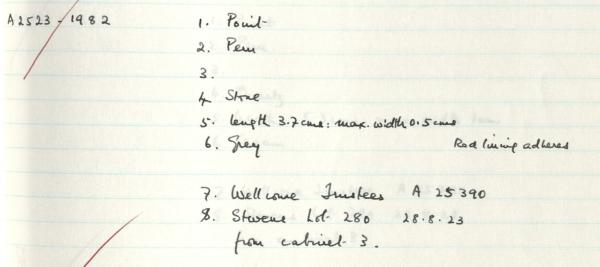 A2523-1982 1. Point
2. Peru
3.
4. Stone
5. length 3.7cms: max. width 0.5cms
6. Grey Red lining adheres
7. Wellcome Trustees A 25390
8. Stevens Lot. 280 28.8.23
from cabinet 3.